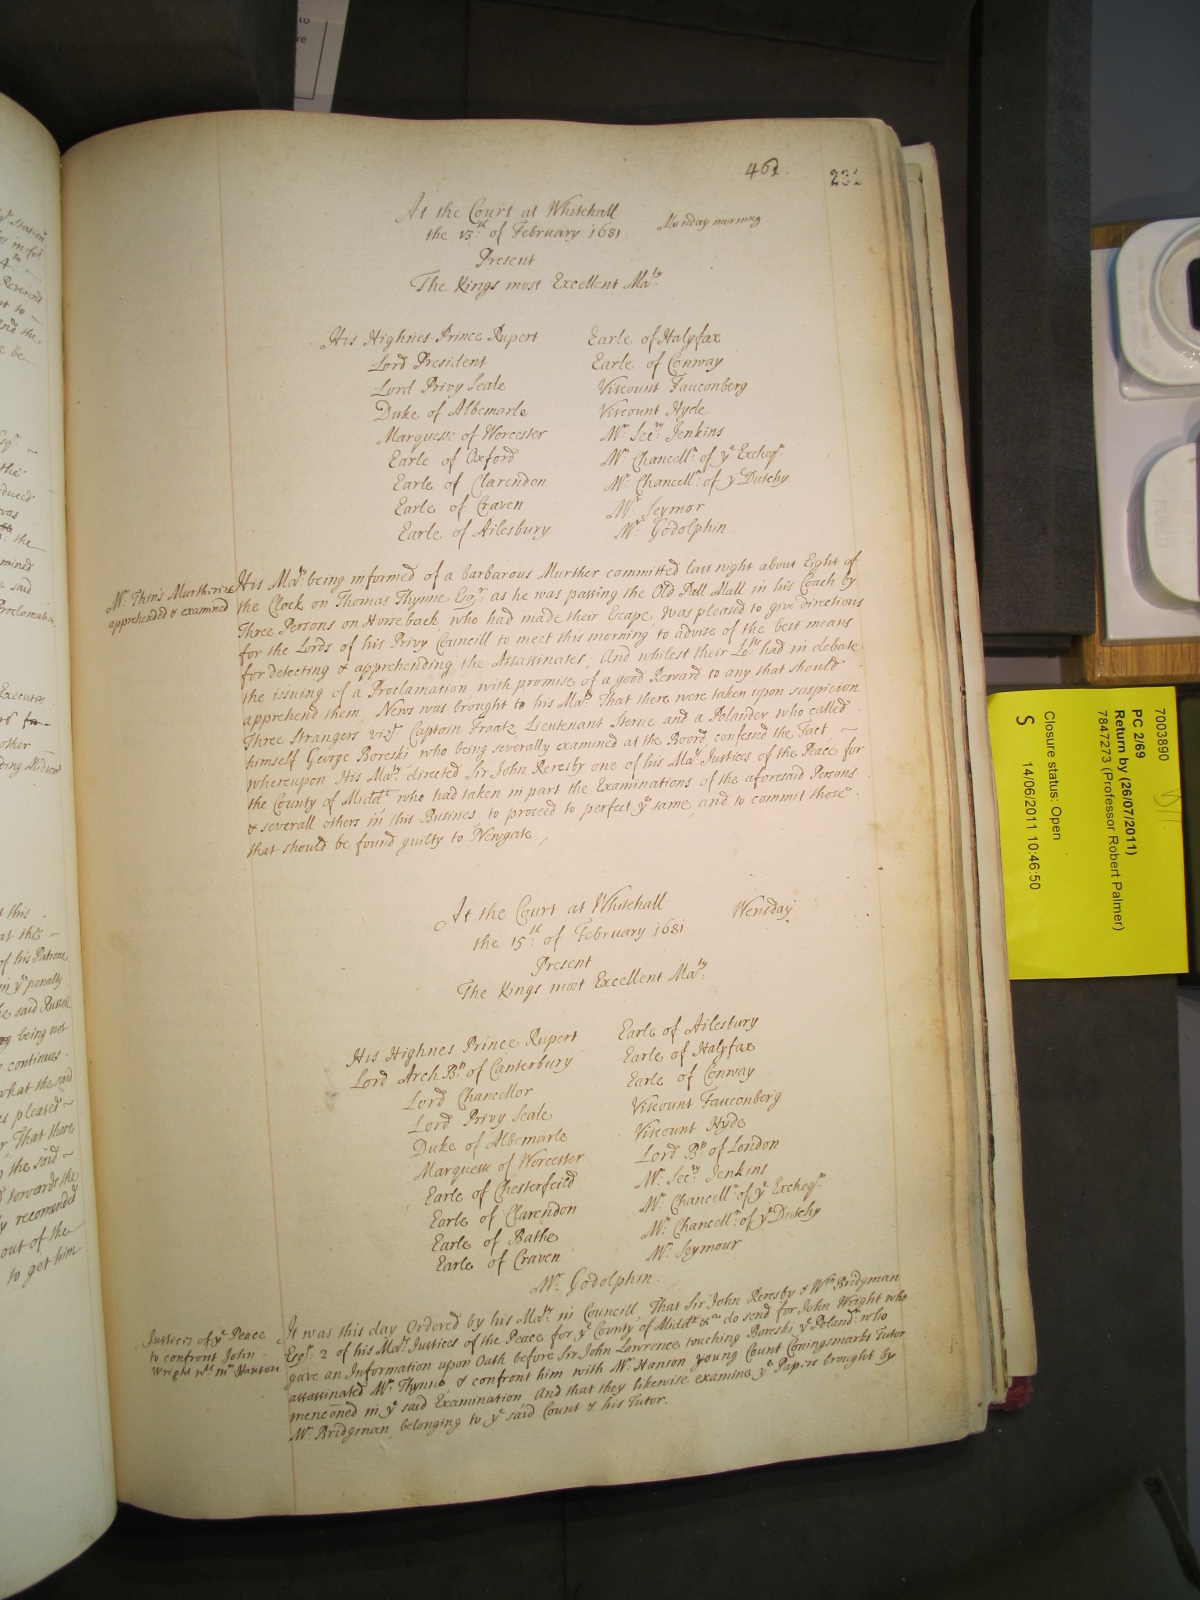 461.
231
At the Court at Whitehall
the 13th of February 1681
Monday morning
Present
The Kings most Excellent Maty
His Highnes Prince Rupert
Lord President
Lord Privy Seale
Duke of Albemarle
Marquesse of Worcester
Earle of Oxford
Earle of Clarendon
Earle of Craven
Earle of Ailesbury
Earle of Halyfax
Earle of Conway
Viscount Fauconberg
Viscount Hyde
Mr Secry Jenkins
Mr Chancellr of ye Excheqr
Mr Chancellr of ye Dutchy
Mr Seymor
Mr Godolphin
Mr Thins Murtherers
apprehended & examined
His Maty being informed of a barbarous Murther committed last night about Eight of
the Clock on Thomas Thynne Esqr as he was passing the Old Pall Mall in his Coach by
Three Persons on Horseback, who had made their Escape, was pleased to give directions
for the Lords of his Privy Councill to meet this morning to advise of the best means
for detecting & apprehending the Assassinates; And whilest their Lopps had in debate
the issuing of a Proclamation with promise of a good Reward to any that should
apprehend them, News was brought to his Maty That there were taken upon suspicion
Three Strangers vizt Captain Fraatz, Lieutenant Sterne and a Polander who called
himself George Boreski, who being severally examined at the Board confessd the Fact,
whereupon His Maty directed Sir John Reresby one of his Mats Justices of the Peace for
the County of Middx who had taken in part the Examinations of the aforesaid Persons
& severall others in this Busines, to proceed to perfect ye same, and to commit those
that should be found guilty to Newgate,
At the Court at Whitehall
Wensday
the 15th of February 1681
Present
The Kings most Excellent Maty
His Highnes Prince Rupert
Lord Arch Bp of Canterbury
Lord Chancellor
Lord Privy Seale
Duke of Albemarle
Marquesse of Worcester
Earle of Chesterfeild
Earle of Clarendon
Earle of Bathe
Earle of Craven
Earle of Ailesbury
Earle of Halyfax
Earle of Conway
Viscount Fauconberg
Viscount Hyde
Lord Bp of London
Mr Secry Jenkins
Mr Chancellr of ye Excheqr
Mr Chancellr of ye Dutchy
Mr Seymour
Mr Godolphin
Justices of ye Peace
to confront John
Wright wth Mr Hanson
It was this day Ordered by his Maty in Councill, That Sir John Reresby & Wm Bridgman
Esqr 2 of his Mats Justices of the Peace for ye County of Middx &c do send for John Wright who
gave an Information upon Oath before Sir John Lawrence touching Boreski ye Polandr who
assassinated Mr Thynne & confront him with Mr Hanson young Count Coningsmarks Tutor
menconed in ye said Examination And that they likewise examine ye Papers brought by
Mr Bridgman, belonging to ye said Count & his Tutor.
7003890
PC 2/69
Return by (26/07/2011)
7847273 (Professor Robert Palmer)
Closure status: Open
S 14/06/2011 10:46:50